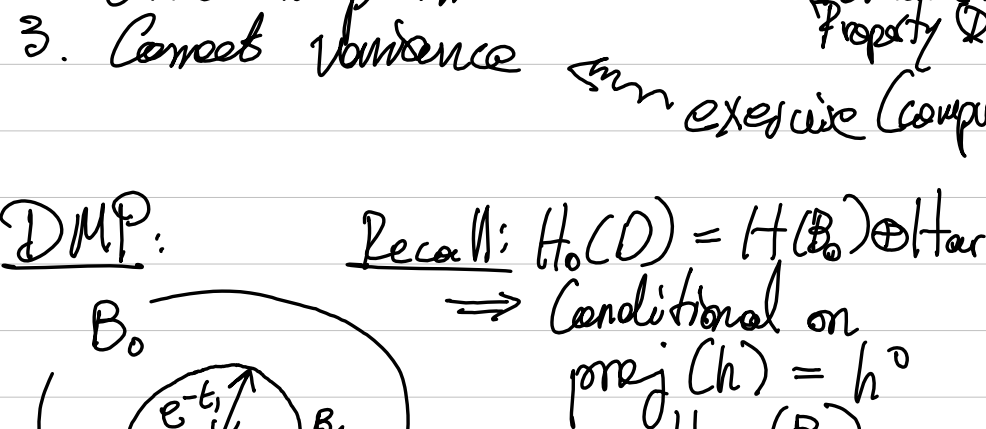 3. Correct Variance
Property
exercise (compu
DMP: Recall: H₀(D) = H(B₀)⊕Har
⟹ Conditional on
B₀
proj(h) = h⁰
e^{-t₁}
B₁